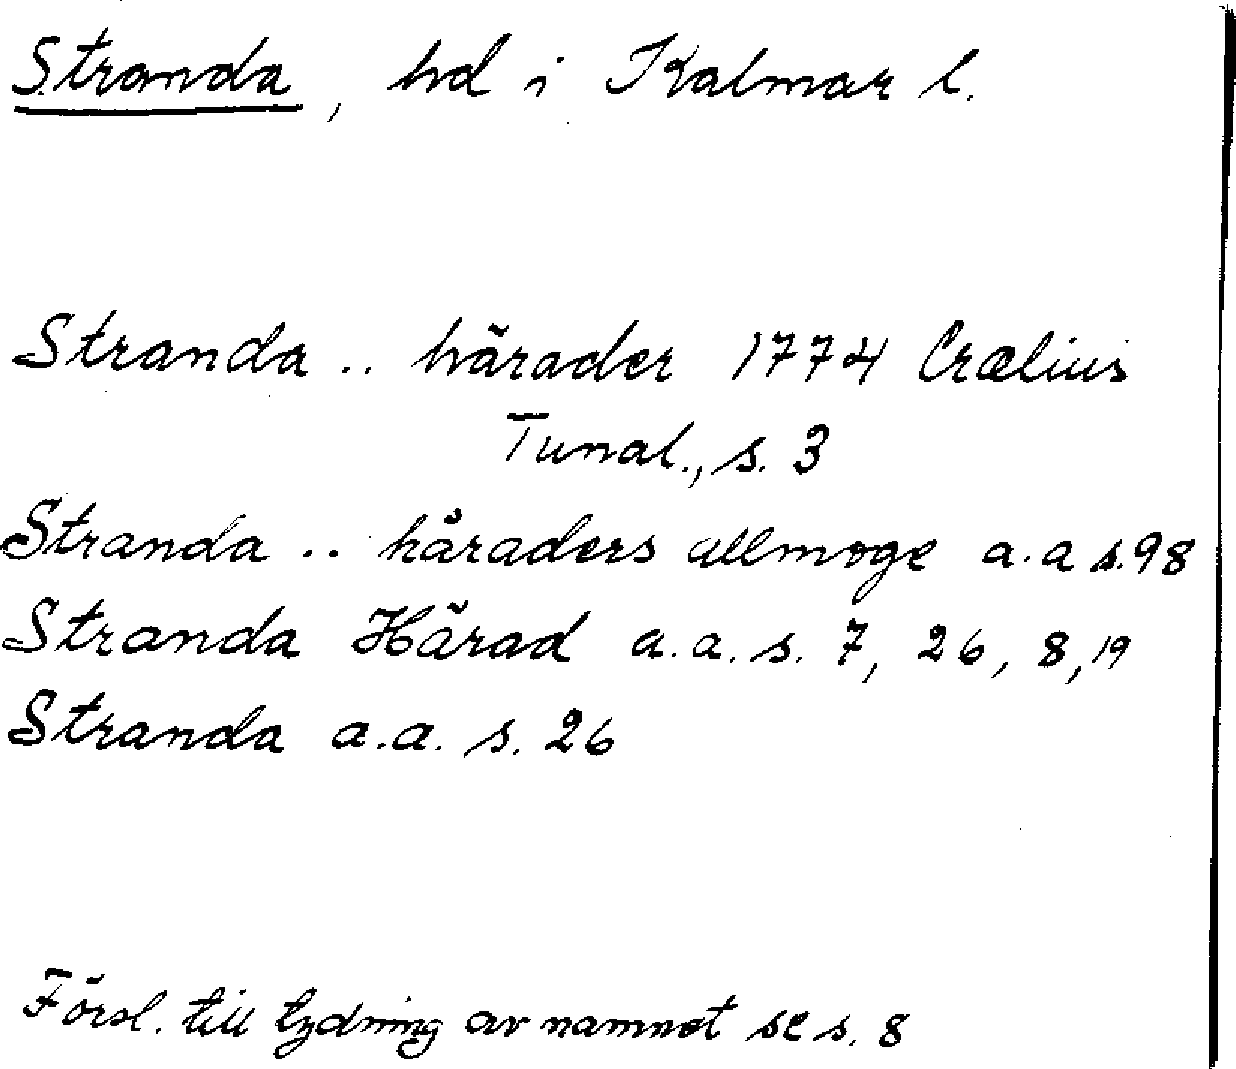 Stranda, hd i Kalmar l.
Stranda .. härader 1774 Crælius
Tunal., s. 3
Stranda .. häraders allmoge a.a s. 98
Stranda Härad a.a. s. 7, 26, 8, 19
Stranda a.a. s. 26
Försl. till tydning av namnet se s. 8